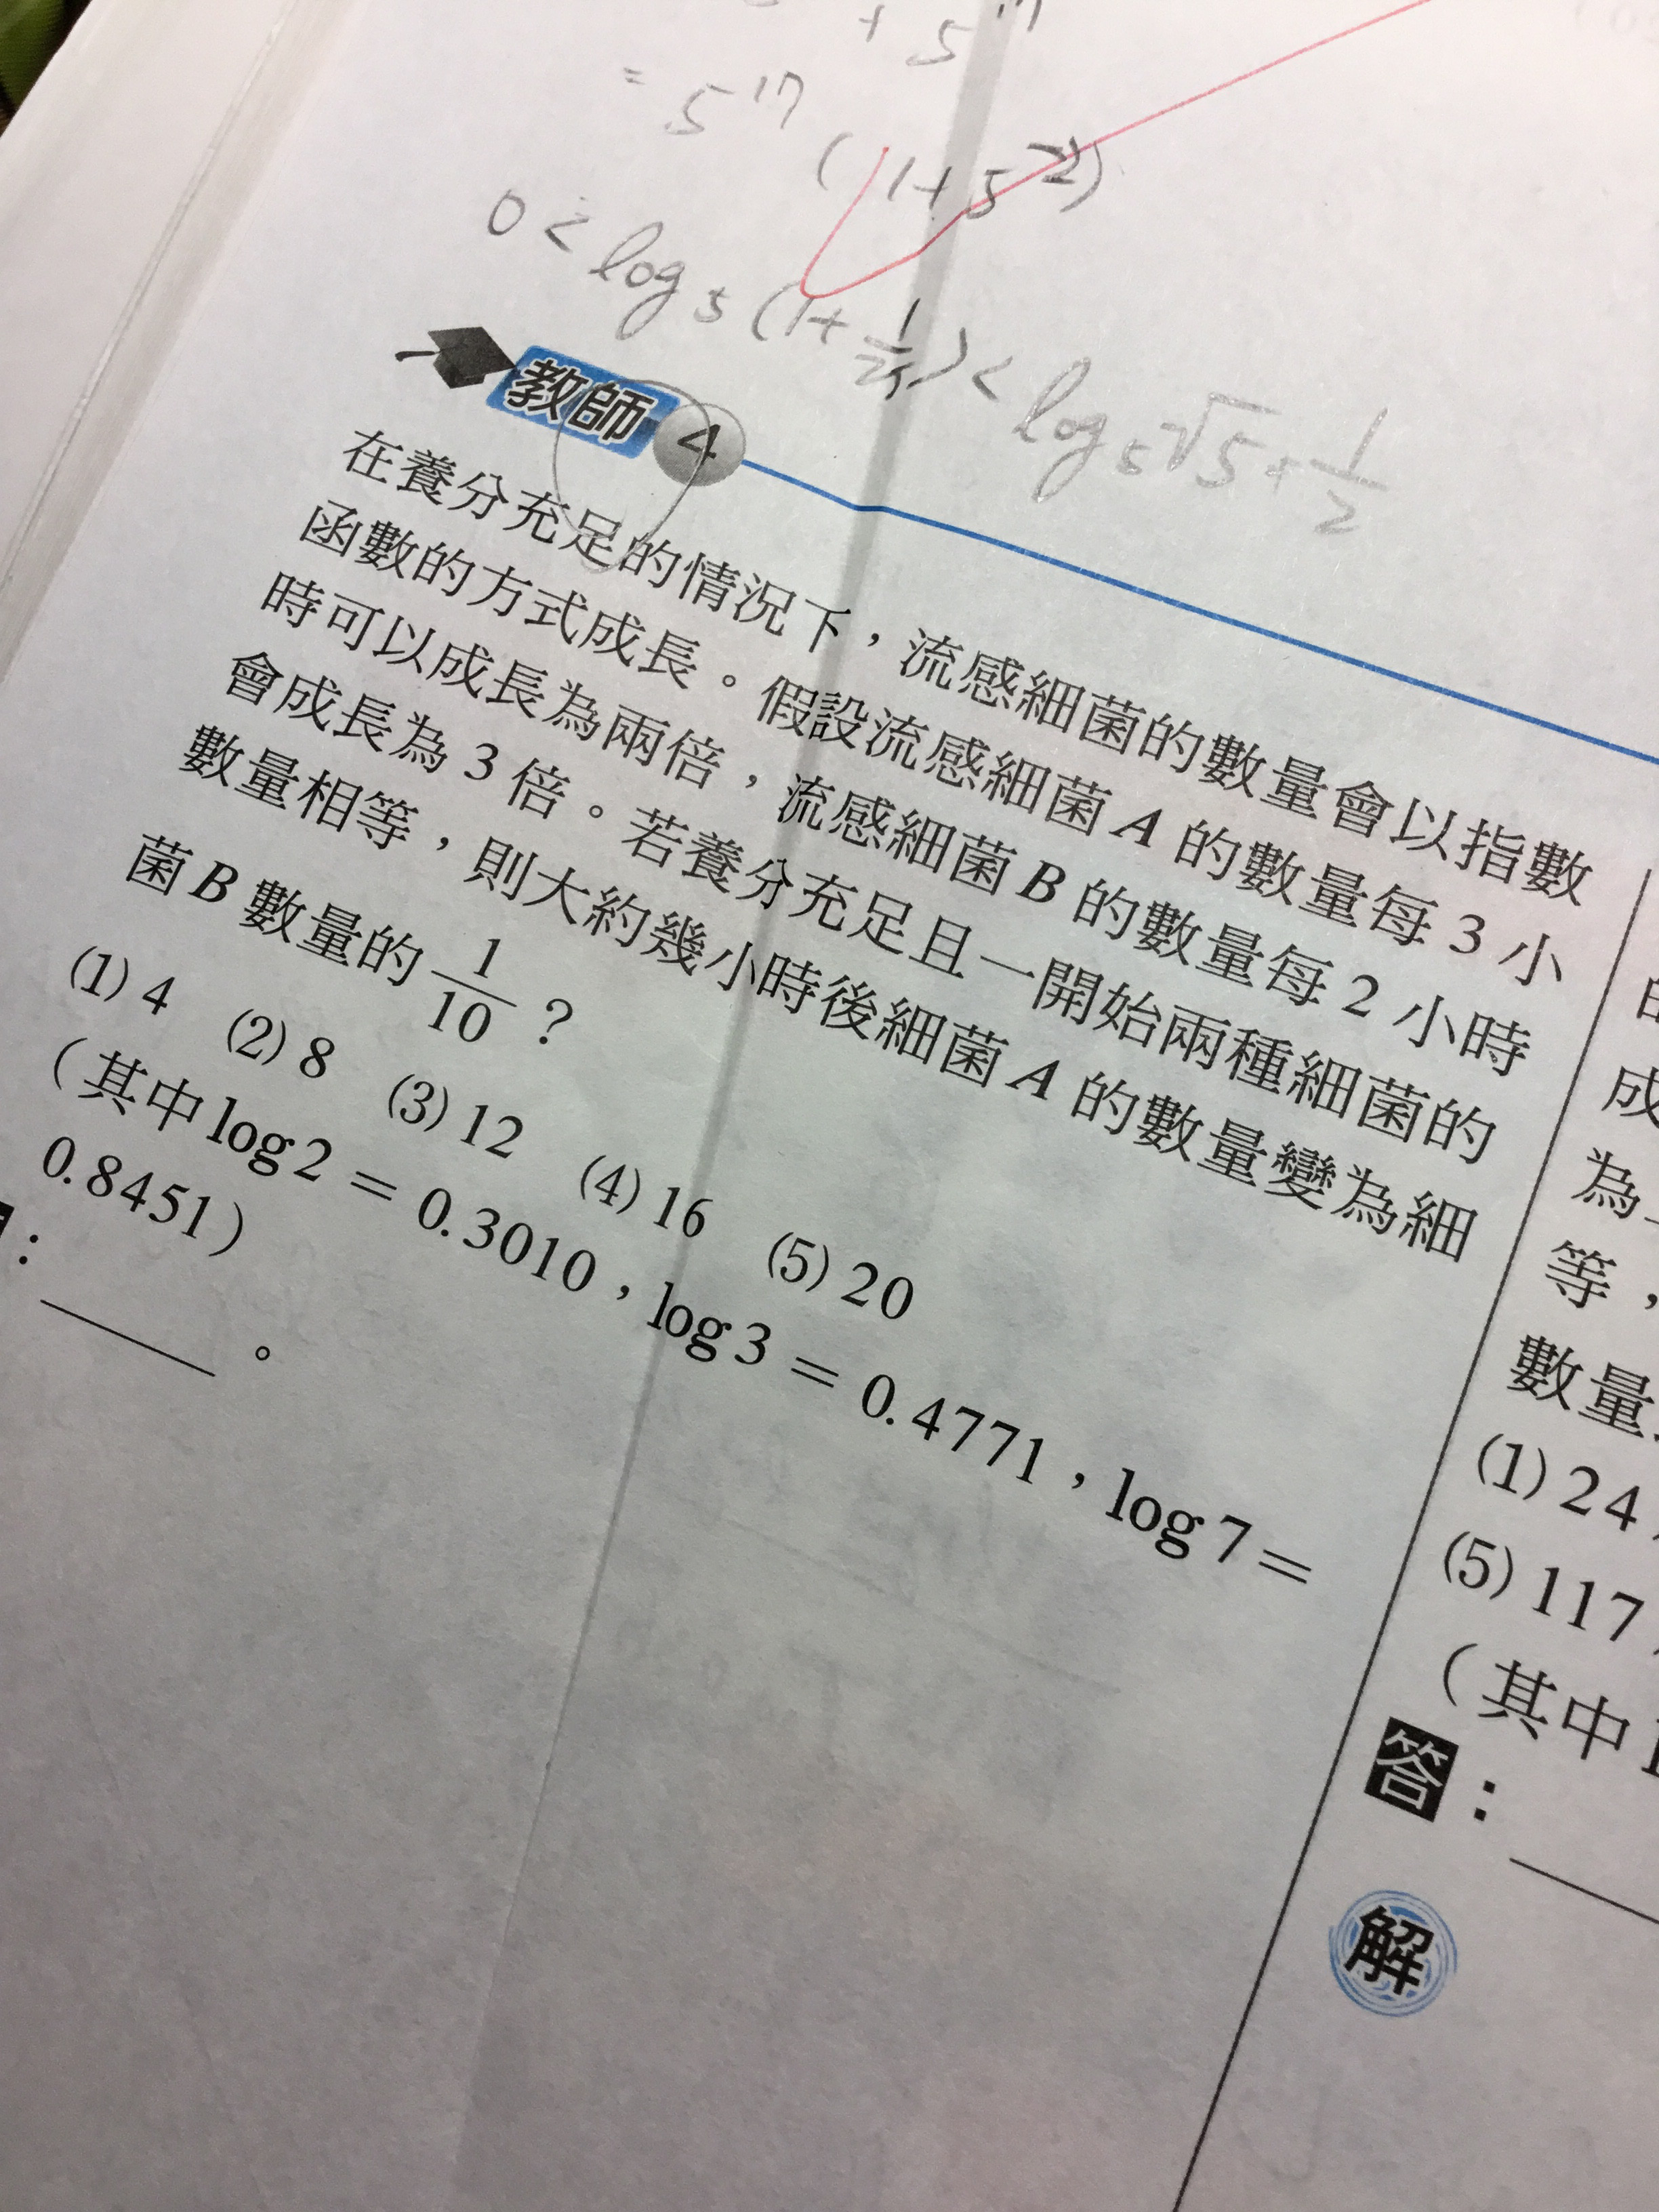 + 5¹⁷
= 5¹⁷ (1+5²)
0 < log₅ (1+1/25) < log₅√5 = 1/2
教師 4
在養分充足的情況下，流感細菌的數量會以指數
函數的方式成長。假設流感細菌 A 的數量每 3 小
時可以成長為兩倍，流感細菌 B 的數量每 2 小時
會成長為 3 倍。若養分充足且一開始兩種細菌的
數量相等，則大約幾小時後細菌 A 的數量變為細
菌 B 數量的 1/10 ？
(1) 4 (2) 8 (3) 12 (4) 16 (5) 20
（其中 log 2 = 0.3010，log 3 = 0.4771，log 7 =
0.8451）
： ＿＿＿。
成
為
等，
數量
(1) 24
(5) 117
（其中
答：
解